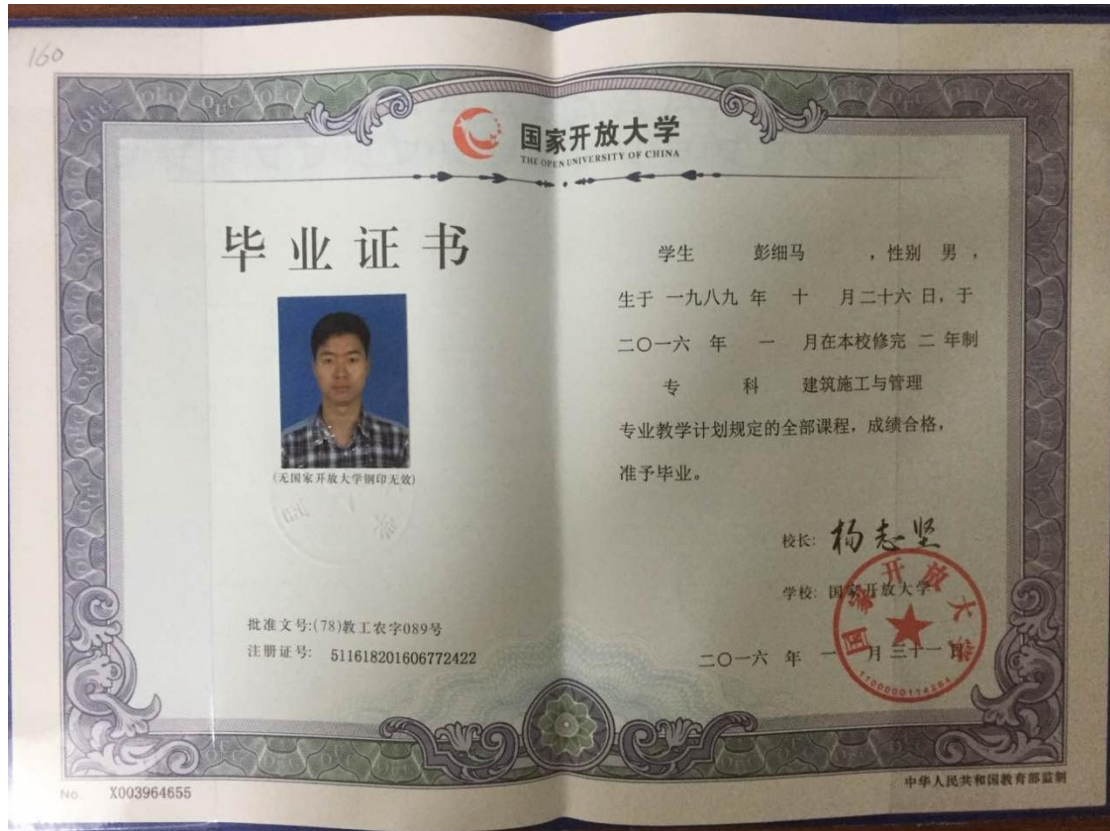 160
国家开放大学
THE OPEN UNIVERSITY OF CHINA
毕业证书
(无国家开放大学钢印无效)
批准文号:(78)教工农字089号
注册证号: 511618201606772422
学生 彭细马 ，性别 男 ，
生于 一九八九 年 十 月二十六 日，于
二〇一六 年 一 月在本校修完 二 年制
专 科 建筑施工与管理
专业教学计划规定的全部课程，成绩合格，
准予毕业。
校长: 杨志坚
学校: 国家开放大学
二〇一六 年 一 月三十一日
国家开放大学
1100000114284
No. X003964655
中华人民共和国教育部监制